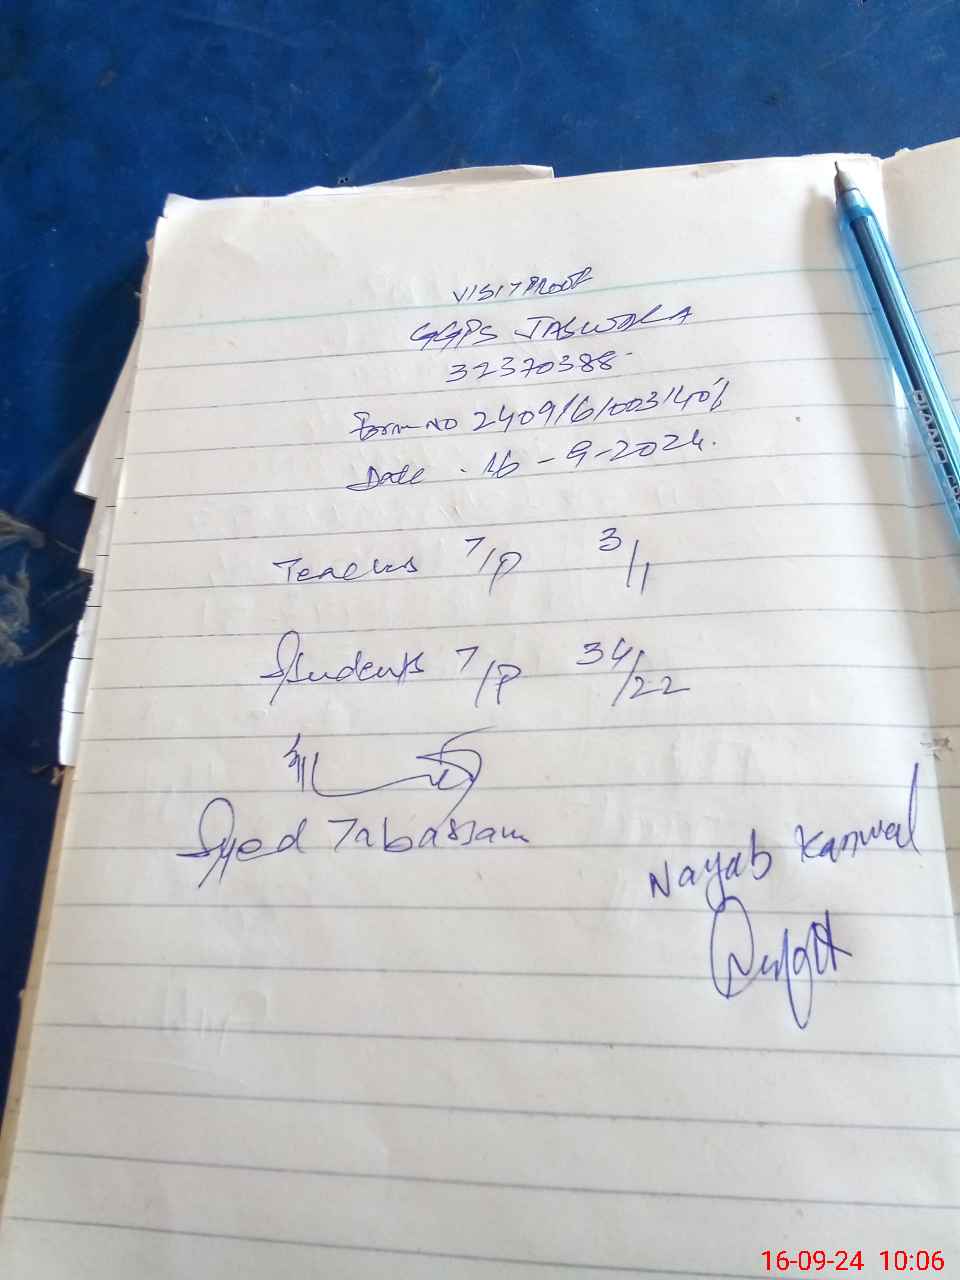 VISIT PROOF
GGPS JASWALA
32370388
Form NO 2409/6/0031401
Date . 16-9-2024.
Teachers T/P 3/1
Students T/P 34/22
Syed Tabassam
Nayab Kanwal
PIANO
16-09-24 10:06